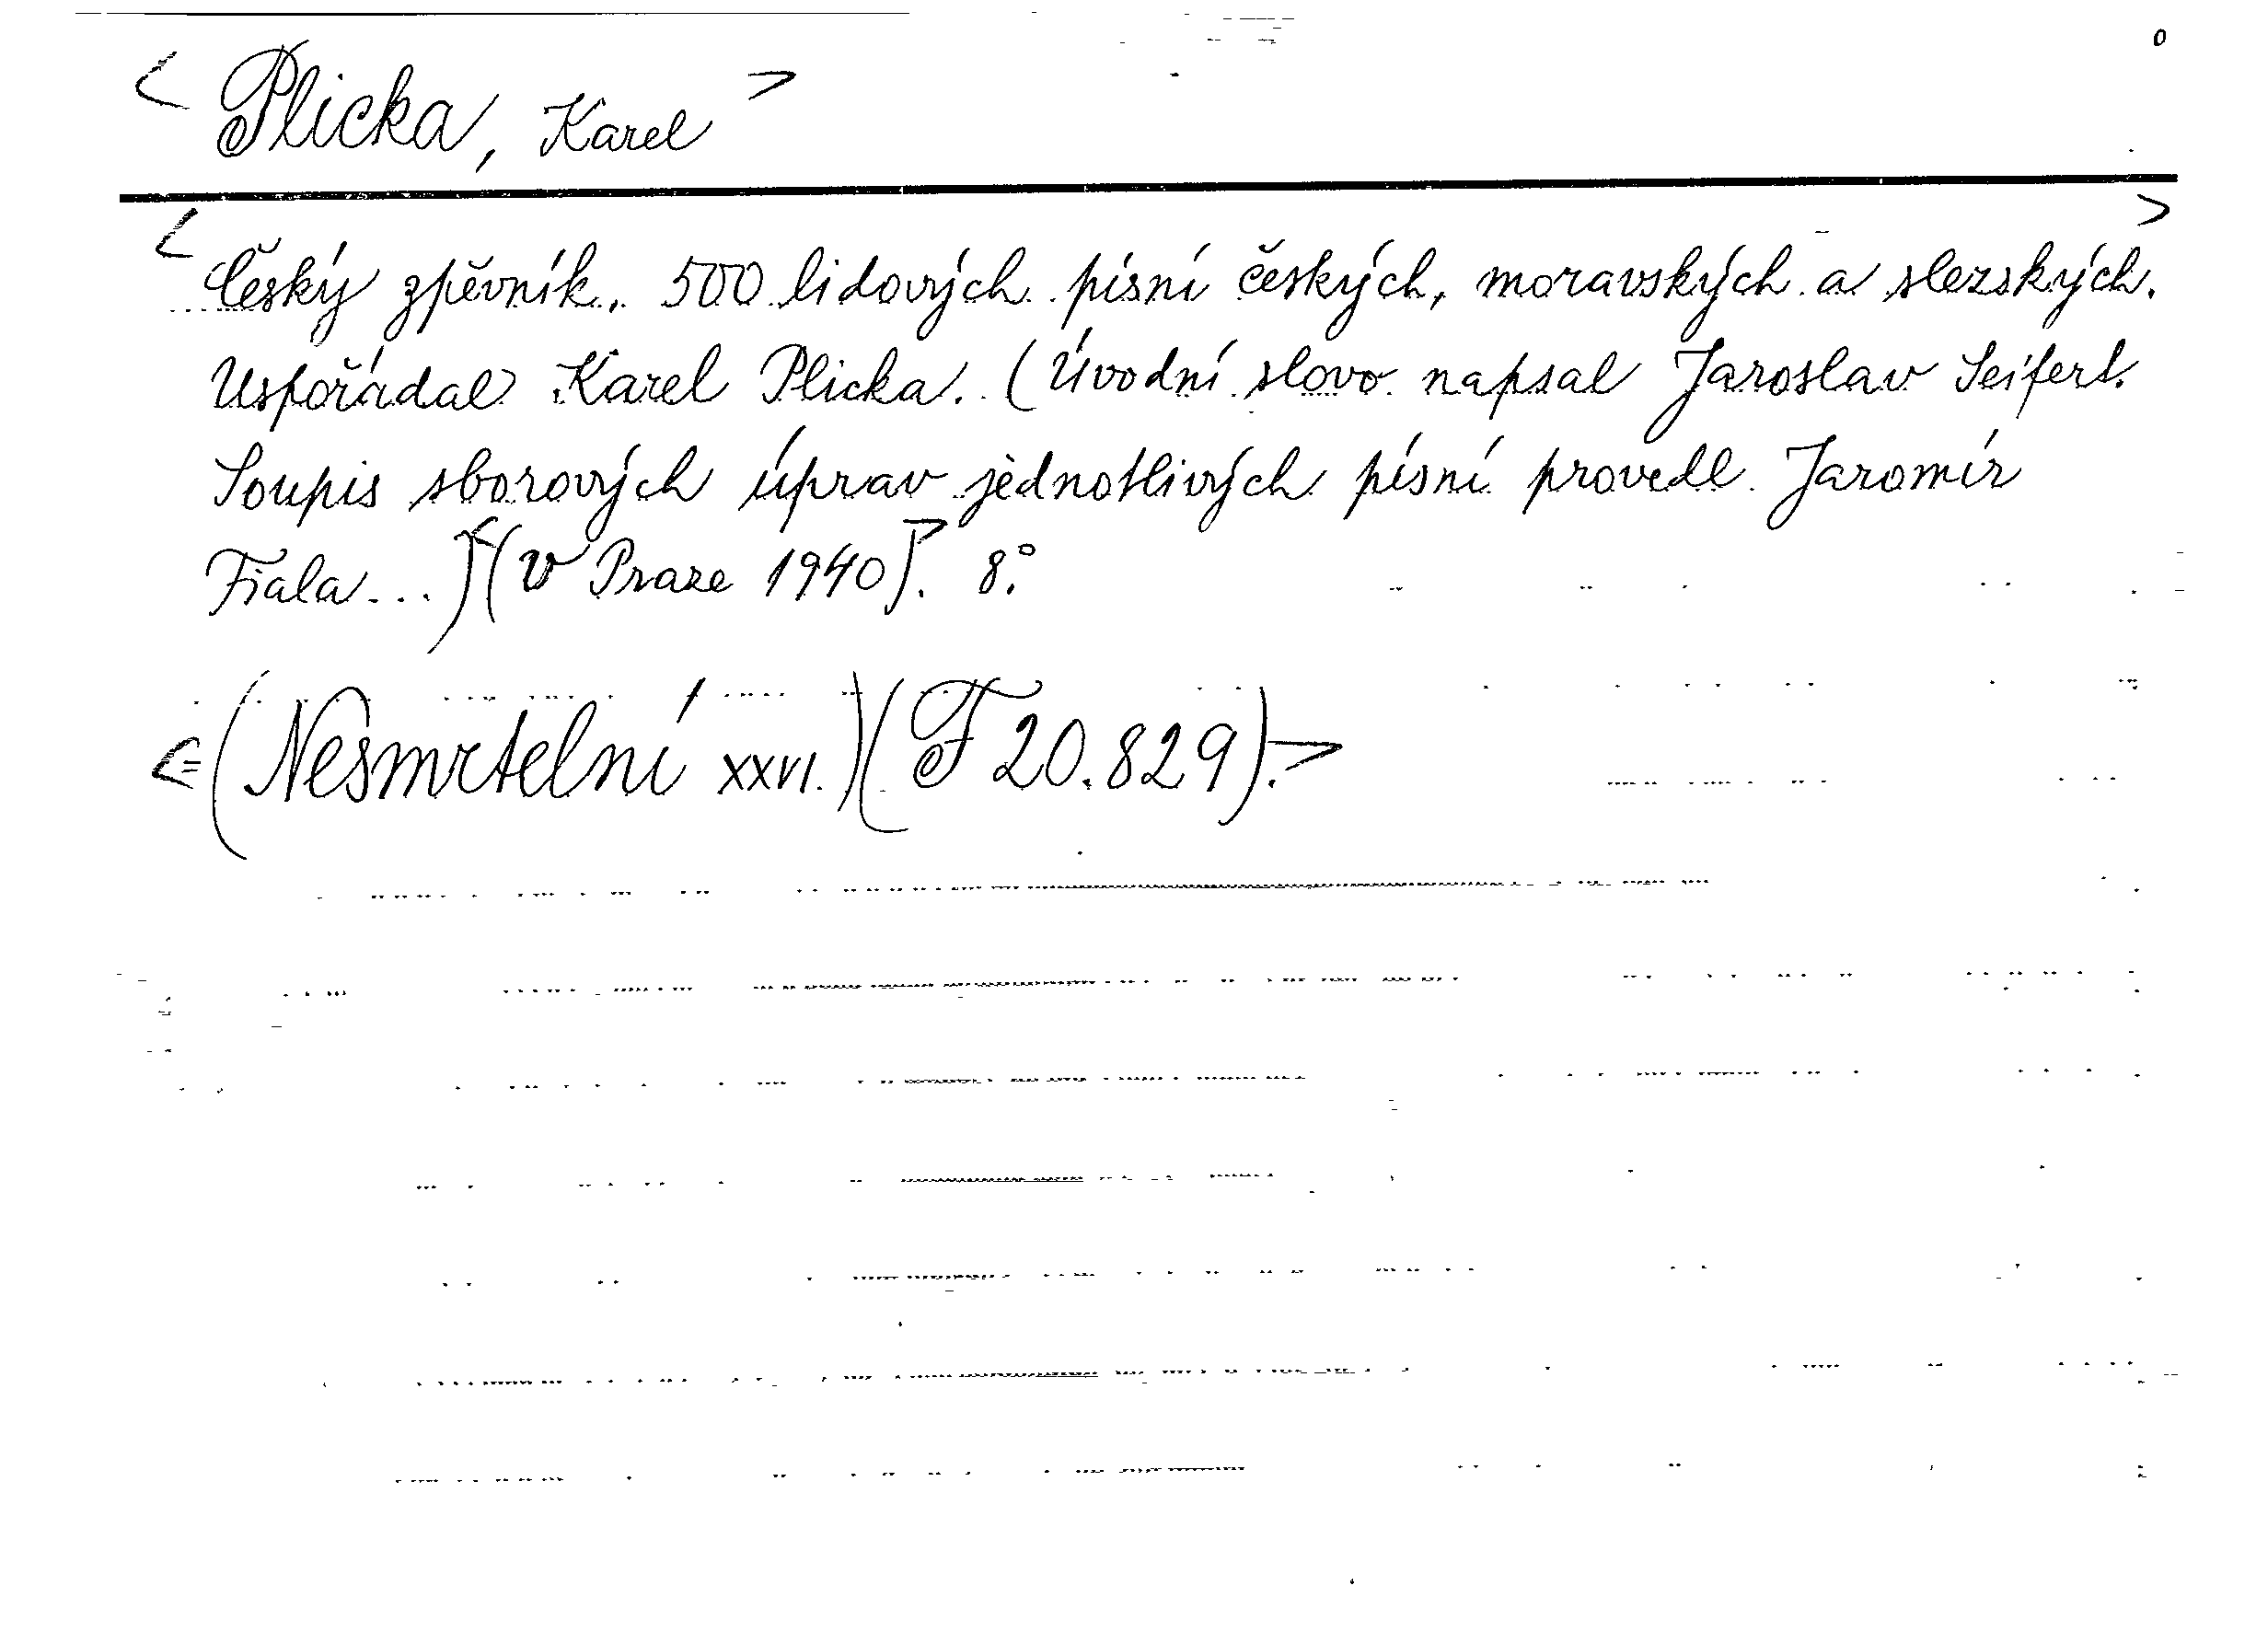 < Plicka, Karel >
0
< Český zpěvník. 500 lidových písní českých, moravských a slezských. >
Uspořádal Karel Plicka. (Úvodní slovo napsal Jaroslav Seifert.
Soupis sborových úprav jednotlivých písní provedl Jaromír
Fiala...) <(V Praze 1940)>. 8°.
<= (Nesmrtelní XXVI.) (F 20.829). >